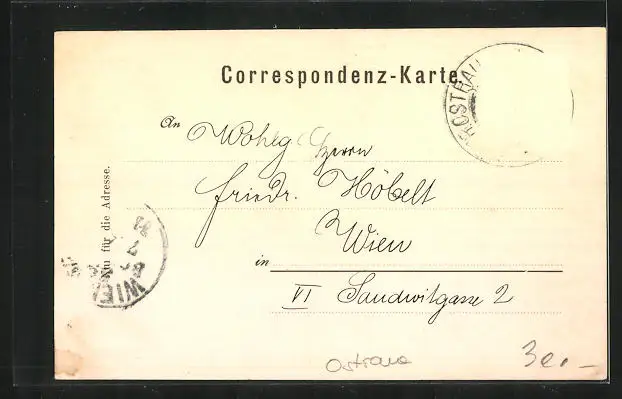 Correspondenz-Karte
OSTRAU
An Wohlg Herrn
Friedr. Höbelt
Wien
in
VI Sandwirtgasse 2
Nur für die Adresse.
WIEN
Ostrava
30,-